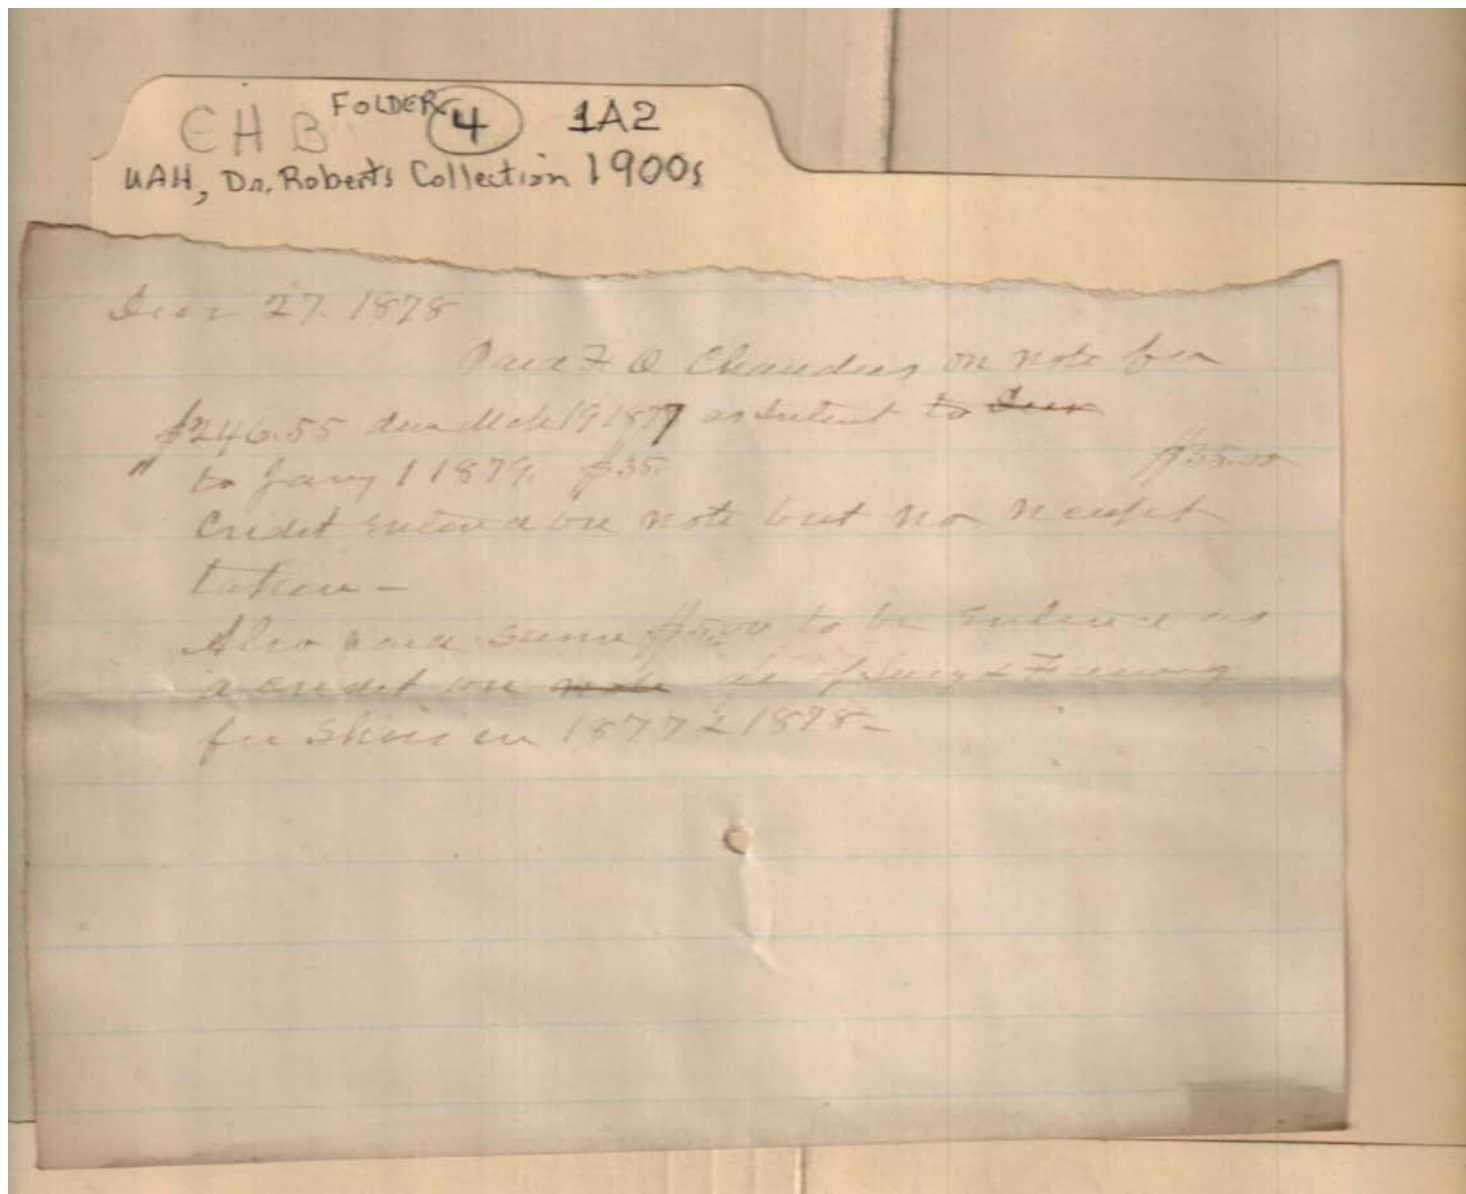 CHB FOLDER 4 1A2
UAH, Dr. Roberts Collection 1900s
27. 1878
Paid F O on note for
$246.55 due Mch 19 1877 as Interest to
" to Jany 1 1879. $35. $35.00
Credit entered on note but no receipt
taken –
Also paid same $5.00 to be entered as
a credit on note of
for Shoes in 1877 & 1878 –